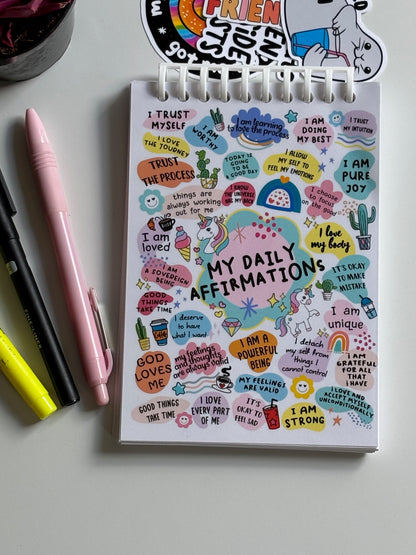 FRIEN
iDE
I TRUST
MYSELF
I AM
WORTHY
I am learning
to love the process
I AM
DOING
MY BEST
I TRUST
MY INTUITION
I LOVE
THE JOURNEY
TRUST
THE PROCESS
TODAY IS
GOING TO
BE A GOOD
DAY
I ALLOW
MY SELF TO
FEEL MY EMOTIONS
I AM
PURE
JOY
things are
always working
out for me
I KNOW
THE UNIVERSE
HAS MY BACK
I choose to
focus
on the good
I am
loved
I love
my body
MY DAILY
AFFIRMATIONS
I AM
A SOVEREIGN
BEING
IT'S OKAY
TO MAKE
MISTAKE
GOOD THINGS
TAKE TIME
I deserve to
have what
I want
I am
unique
GOD
LOVES
ME
my feelings
and thoughts
are always valid
I AM A
POWERFUL
BEING
I detach
my self from
things I
cannot control
I AM
GRATEFUL
FOR ALL
THAT
I HAVE
MY FEELINGS
ARE VALID
GOOD THINGS
TAKE TIME
I LOVE
EVERY PART
OF ME
IT'S
OKAY TO
FEEL SAD
I AM
STRONG
I LOVE AND
ACCEPT MYSELF
UNCONDITIONALLY